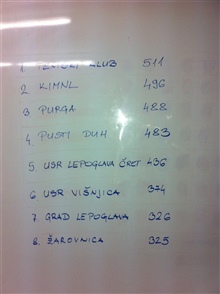 1. KLUB 511
2. KIMNL 496
3. PURGA 488
4. PUSTI DUH 483
5. USR LEPOGLAVA ČRET 436
6. USR VIŠNJICA 374
7. GRAD LEPOGLAVA 326
8. ŽAROVNICA 325